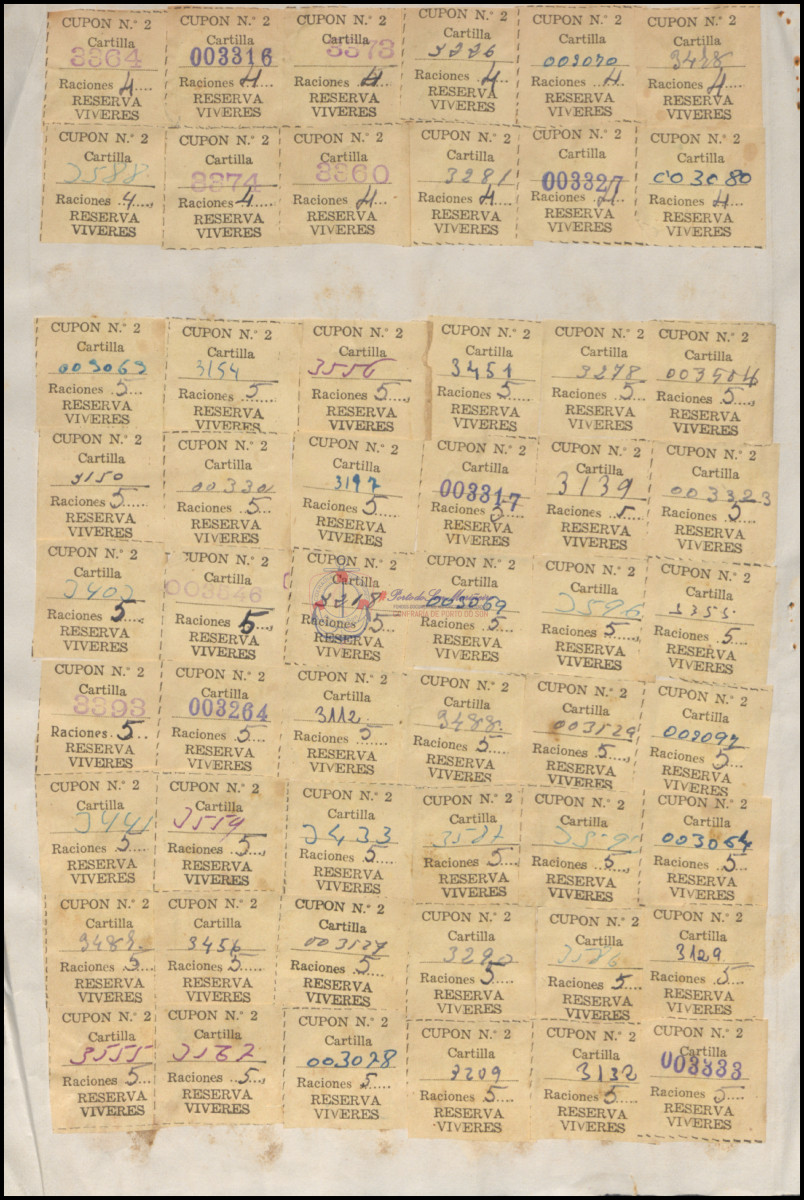 CUPON N.º 2 CUPON N.º 2 CUPON N.º 2 CUPON N.º 2 CUPON N.º 2 CUPON N.º 2
Cartilla Cartilla Cartilla Cartilla Cartilla Cartilla
3364 003316 3373 3226 003070 3478
Raciones 4 Raciones 4 Raciones 4 Raciones 4 Raciones 4 Raciones 4
RESERVA RESERVA RESERVA RESERVA RESERVA RESERVA
VIVERES VIVERES VIVERES VIVERES VIVERES VIVERES
CUPON N.º 2 CUPON N.º 2 CUPON N.º 2 CUPON N.º 2 CUPON N.º 2 CUPON N.º 2
Cartilla Cartilla Cartilla Cartilla Cartilla Cartilla
3588 3374 3360 3281 003327 003080
Raciones 4 Raciones 4 Raciones 4 Raciones 4 Raciones 4 Raciones 4
RESERVA RESERVA RESERVA RESERVA RESERVA RESERVA
VIVERES VIVERES VIVERES VIVERES VIVERES VIVERES
CUPON N.º 2 CUPON N.º 2 CUPON N.º 2 CUPON N.º 2 CUPON N.º 2 CUPON N.º 2
Cartilla Cartilla Cartilla Cartilla Cartilla Cartilla
003063 3154 3556 3451 3278
Raciones 5 Raciones 5 Raciones 5 Raciones 5 Raciones 5 Raciones 5
RESERVA RESERVA RESERVA RESERVA RESERVA RESERVA
VIVERES VIVERES VIVERES VIVERES VIVERES VIVERES
CUPON N.º 2 CUPON N.º 2 CUPON N.º 2 CUPON N.º 2 CUPON N.º 2 CUPON N.º 2
Cartilla Cartilla Cartilla Cartilla Cartilla Cartilla
3150 003317 3139 003323
Raciones 5 Raciones 5 Raciones 5 Raciones 5 Raciones 5 Raciones 5
RESERVA RESERVA RESERVA RESERVA RESERVA RESERVA
VIVERES VIVERES VIVERES VIVERES VIVERES VIVERES
CUPON N.º 2 CUPON N.º 2 CUPON N.º 2 CUPON N.º 2 CUPON N.º 2 CUPON N.º 2
Cartilla Cartilla Cartilla Cartilla Cartilla Cartilla
003069 3596 3355
CONFRARÍA DE PORTO DO SON
Raciones 5 Raciones 5 Raciones 5 Raciones 5 Raciones 5 Raciones 5
RESERVA RESERVA RESERVA RESERVA RESERVA RESERVA
VIVERES VIVERES VIVERES VIVERES VIVERES VIVERES
CUPON N.º 2 CUPON N.º 2 CUPON N.º 2 CUPON N.º 2 CUPON N.º 2 CUPON N.º 2
Cartilla Cartilla Cartilla Cartilla Cartilla Cartilla
3393 003264 3112 3488 003529 003097
Raciones 5 Raciones 5 Raciones 5 Raciones 5 Raciones 5 Raciones 5
RESERVA RESERVA RESERVA RESERVA RESERVA RESERVA
VIVERES VIVERES VIVERES VIVERES VIVERES VIVERES
CUPON N.º 2 CUPON N.º 2 CUPON N.º 2 CUPON N.º 2 CUPON N.º 2 CUPON N.º 2
Cartilla Cartilla Cartilla Cartilla Cartilla Cartilla
3441 3559 3433 3587 003064
Raciones 5 Raciones 5 Raciones 5 Raciones 5 Raciones 5 Raciones 5
RESERVA RESERVA RESERVA RESERVA RESERVA RESERVA
VIVERES VIVERES VIVERES VIVERES VIVERES VIVERES
CUPON N.º 2 CUPON N.º 2 CUPON N.º 2 CUPON N.º 2 CUPON N.º 2 CUPON N.º 2
Cartilla Cartilla Cartilla Cartilla Cartilla Cartilla
3456 003527 3290 3586 3129
Raciones 5 Raciones 5 Raciones 5 Raciones 5 Raciones 5 Raciones 5
RESERVA RESERVA RESERVA RESERVA RESERVA RESERVA
VIVERES VIVERES VIVERES VIVERES VIVERES VIVERES
CUPON N.º 2 CUPON N.º 2 CUPON N.º 2 CUPON N.º 2 CUPON N.º 2 CUPON N.º 2
Cartilla Cartilla Cartilla Cartilla Cartilla Cartilla
3555 3567 003078 3209 3132 003333
Raciones 5 Raciones 5 Raciones 5 Raciones 5 Raciones 5 Raciones 5
RESERVA RESERVA RESERVA RESERVA RESERVA RESERVA
VIVERES VIVERES VIVERES VIVERES VIVERES VIVERES